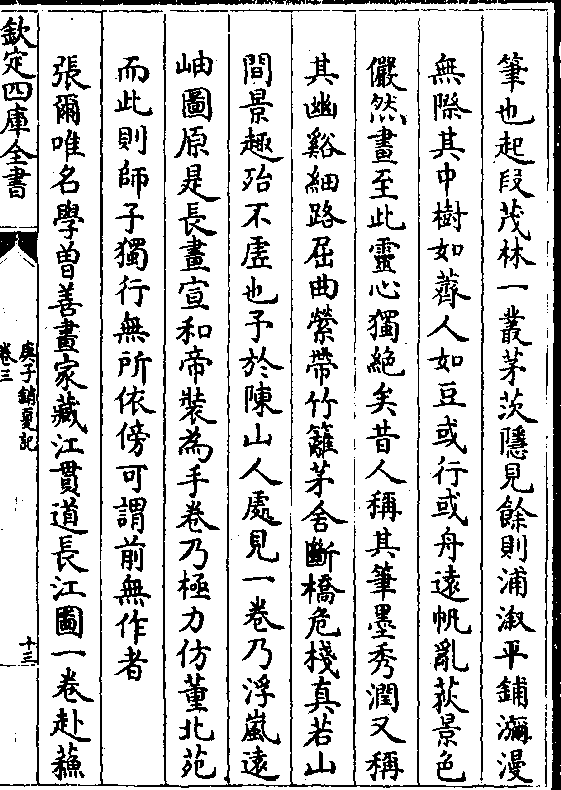 筆也起段茂林一叢茅茨隱見餘則浦溆平鋪瀰漫
無際其中樹如薺人如豆或行或舟遠帆亂荻景色
儼然畫至此靈心獨絶矣昔人稱其筆墨秀潤又稱
其幽谿細路屈曲縈帶竹籬茅舍斷橋危棧真若山
間景趣殆不虛也予於陳山人處見一卷乃浮嵐遠
岫圖原是長畫宣和帝裝為手卷乃極力仿董北苑
而此則師子獨行無所依傍可謂前無作者
張爾唯名學曽善畫家藏江貫道長江圖一卷赴蘇
欽定四庫全書
庚子銷夏記
卷三
十三